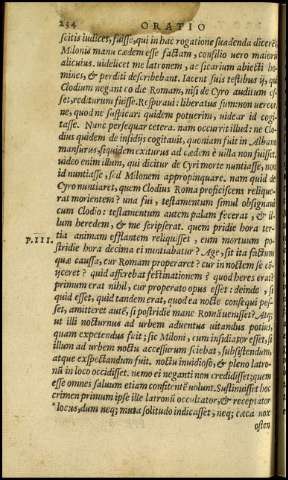 234 ORATIO
scitis iudices, fuisse, qui in hac rogatione suadenda diceret
Milonis manu cædem esse factam, consilio uero maioris
alicuius. uidelicet me latronem, ac sicarium abiecti homines,
& perditi describebant. Iacent suis testibus ij, qui
Clodium negant eo die Romam, nisi de Cyro audisset esset
rediturum fuisse. Respiraui: liberatus sum: non uereor
ne, quod ne suspicari quidem potuerim, uidear id cogitasse.
Nunc persequar cetera. nam occurrit illud: ne Clodius
quidem de insidijs cogitauit, quoniam fuit in Albano
mansurus. siquidem exiturus ad cædem è uilla non fuisset.
uideo enim illum, qui dicitur de Cyri morte nuntiasse, non
id nuntiasse, sed Milonem appropinquare. nam quid de
Cyro nuntiaret, quem Clodius Roma proficiscens reliquerat
morientem? una fui, testamentum simul obsignaui
cum Clodio: testamentum autem palam fecerat, & illum
heredem, & me scripserat. quem pridie hora tertia
animam efflantem reliquisset, eum mortuum postridie
P.III. hora decima ei nuntiabatur? Age, sit ita factum
quæ caussa, cur Romam properaret? cur in noctem se conijceret?
quid afferebat festinationem? quod heres erat?
primum erat nihil, cur properato opus esset: deinde, si
quid esset, quid tandem erat, quod ea nocte consequi posset,
amitteret autē, si postridie mane Romā uenisset? Atq;
ut illi nocturnus ad urbem aduentus uitandus potius,
quam expetendus fuit: sic Miloni, cum insidiator esset, si
illum ad urbem noctu accessurum sciebat, subsistendum,
atque exspectandum fuit. noctu inuidioso, & pleno latronū
in loco occidisset. nemo ei neganti non credidisset: quem
esse omnes saluum etiam confitentē uolunt. Sustinuisset hoc
crimen primum ipse ille latronū occultator, & receptator
locus, dum neq; muta solitudo indicasset, neq; cæca nox
osten